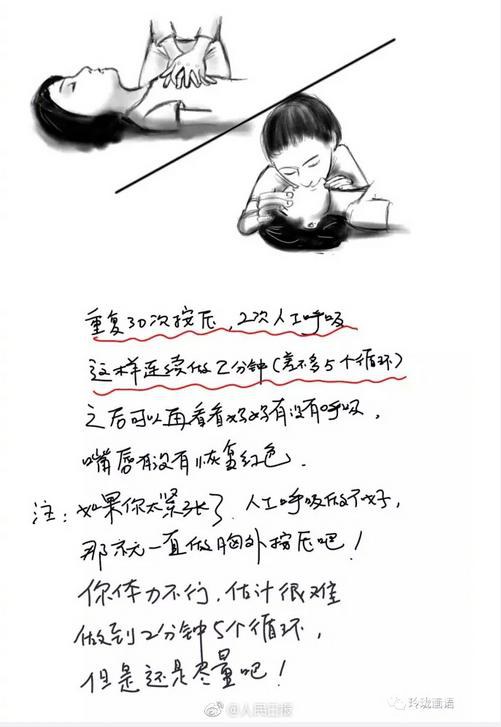 重复30次按压，2次人工呼吸
这样连续做2分钟（差不多5个循环）
之后可以再看看妈妈有没有呼吸，
嘴唇有没有恢复红色.
注：如果你太紧张了，人工呼吸做不好，
那就一直做胸外按压吧！
你体力不行，估计很难
做到2分钟5个循环，
但是还是尽量吧！
玲珑画语
@人民日报